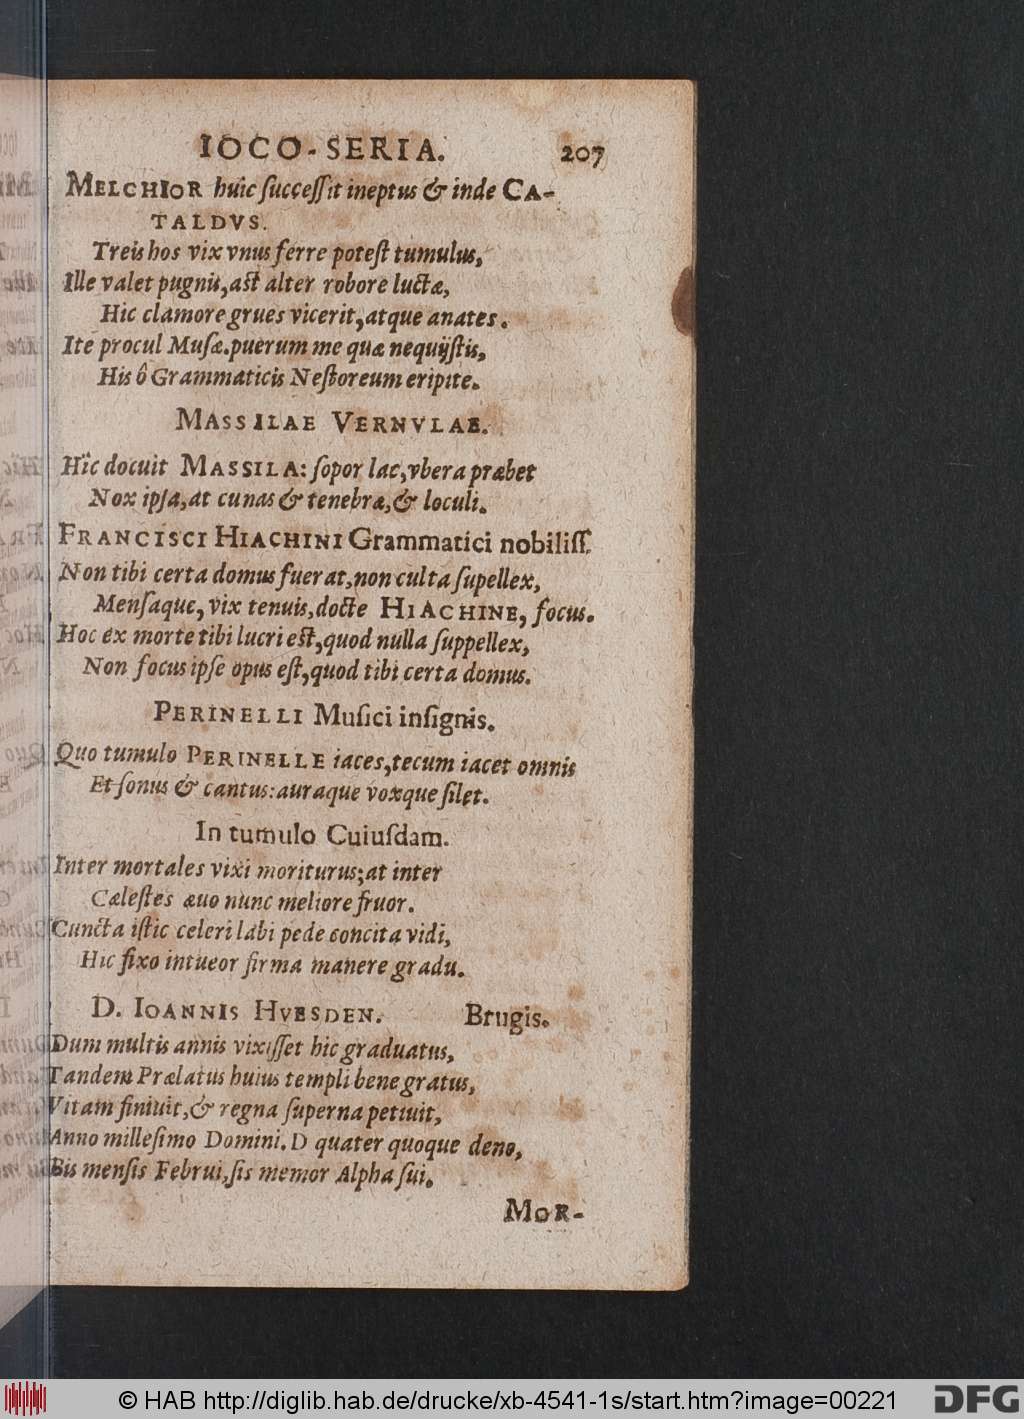 IOCO-SERIA. 207
MELCHIOR huic ſucceſſit ineptus & inde CA-
TALDVS.
Treis hos vix vnus ferre poteſt tumulus,
Ille valet pugnis, aſt alter robore luctæ,
Hic clamore grues vicerit, atque anates.
Ite procul Muſæ. puerum me quæ nequijſtis,
His ô Grammaticis Neſtoreum eripite.
MASSILAE VERNVLAE.
Hîc docuit MASSILA: ſopor lac, vbera præbet
Nox ipſa, at cunas & tenebræ, & loculi.
FRANCISCI HIACHINI Grammatici nobiliſſ.
Non tibi certa domus fuerat, non culta ſupellex,
Menſaque, vix tenuis, docte HIACHINE, focus.
Hoc ex morte tibi lucri eſt, quod nulla ſuppellex,
Non focus ipſe opus eſt, quod tibi certa domus.
PERINELLI Muſici inſignis.
Quo tumulo PERINELLE iaces, tecum iacet omnis
Et ſonus & cantus: auraque voxque ſilet.
In tumulo Cuiuſdam.
Inter mortales vixi moriturus; at inter
Cæleſtes æuo nunc meliore fruor.
Cuncta iſtic celeri labi pede concita vidi,
Hic fixo intueor firma manere gradu.
D. IOANNIS HVESDEN. Brugis.
Dum multis annis vixiſſet hic graduatus,
Tandem Prælatus huius templi bene gratus,
Vitam finiuit, & regna ſuperna petiuit,
Anno milleſimo Domini. D quater quoque deno,
Bis menſis Februi, ſis memor Alpha ſui.
MOR-
© HAB http://diglib.hab.de/drucke/xb-4541-1s/start.htm?image=00221 DFG